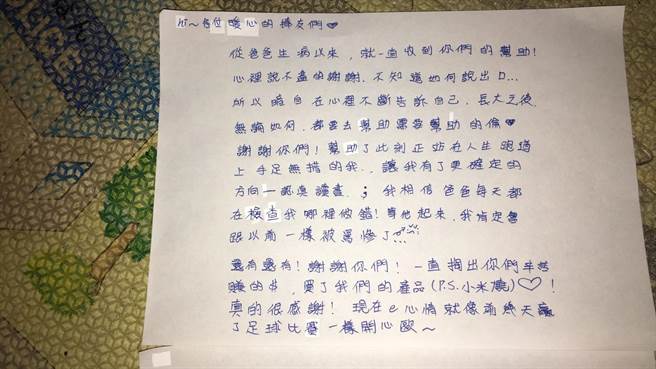 hi～各位暖心的捧友們♥
從爸爸生病以來，就一直收到你們的幫助！
心裡說不盡的謝謝，不知道如何說出口…
所以暗自在心裡不斷告訴自己，長大之後，
無論如何，都要去幫助需要幫助的倫♥
謝謝你們！幫助了此刻正站在人生跑道
上手足無措的我，讓我有了更確定的
方向－認真讀書．；我相信爸爸每天都
在檢查我哪裡做錯！等他起來，我肯定會
跟以前一樣被罵慘了…
還有還有！謝謝你們！一直掏出你們辛苦
賺的$，買了我們的產品(P.S.小米酒)♡！
真的很感謝！現在e心情就像前幾天贏
了足球比賽一樣開心歐～